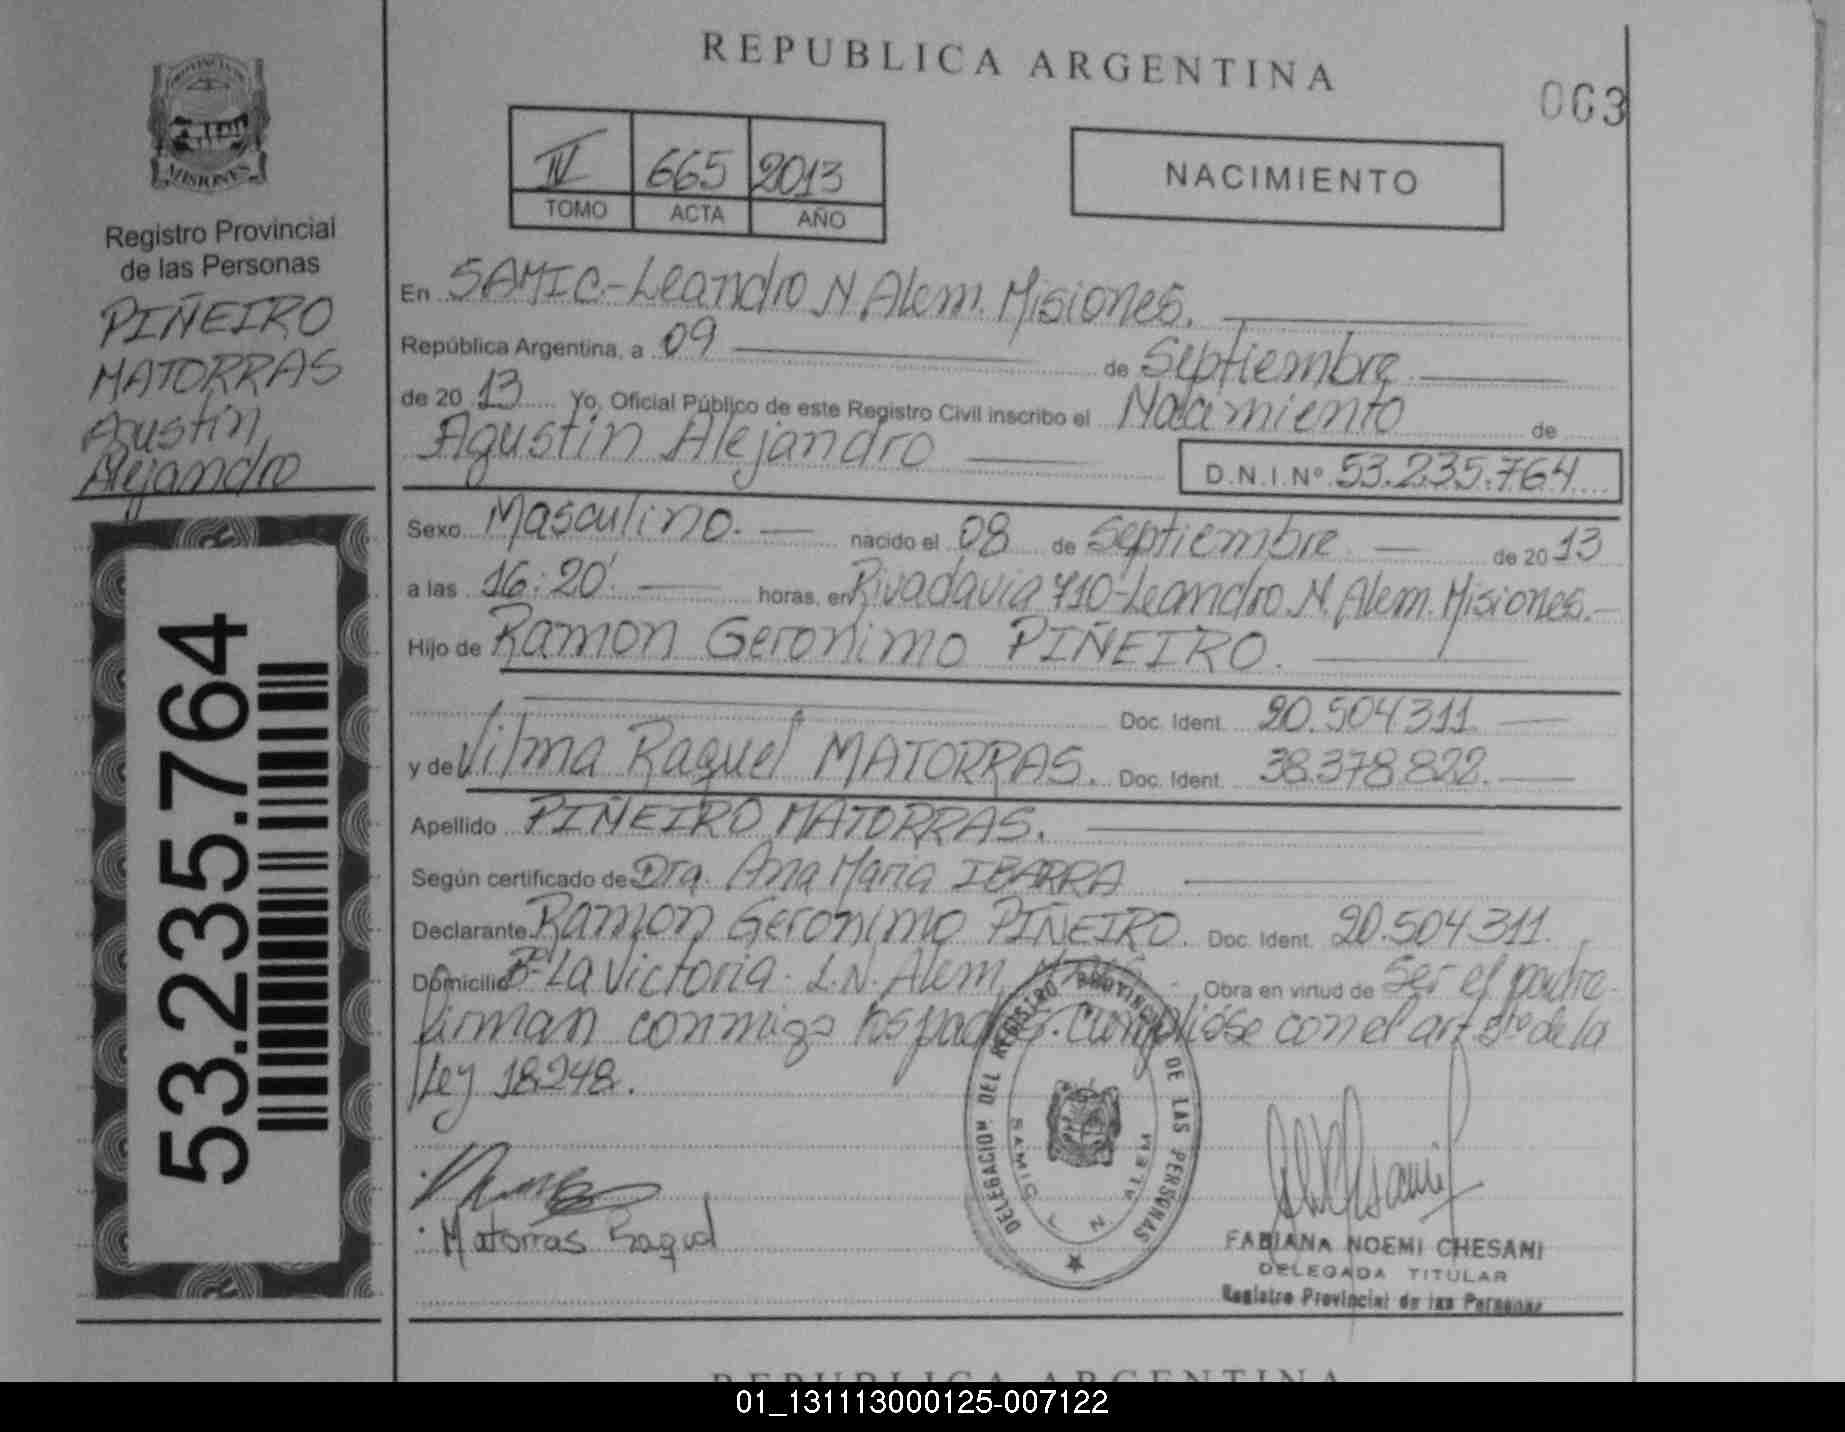 REPUBLICA ARGENTINA
003
PROVINCIA DE
MISIONES
Registro Provincial
de las Personas
PIÑEIRO
MATORRAS
Agustin
Alejandro
53.235.764
IV 665 2013
TOMO ACTA AÑO
NACIMIENTO
En SAMIC-Leandro N. Alem. Misiones.
República Argentina, a 09 de Septiembre
de 2013 Yo, Oficial Público de este Registro Civil inscribo el Nacimiento de
Agustin Alejandro D.N.I.Nº 53.235.764
Sexo Masculino. nacido el 08 de Septiembre de 2013
a las 16:20' horas, en Rivadavia 710-Leandro N. Alem. Misiones.-
Hijo de Ramon Geronimo PIÑEIRO.
Doc. Ident. 20.504.311.
y de Vilma Raquel MATORRAS. Doc. Ident. 38.378.822.
Apellido PIÑEIRO MATORRAS.
Según certificado de Dra. Ana Maria IBARRA
Declarante Ramon Geronimo PIÑEIRO. Doc. Ident. 20.504.311.
Domicilio Bº La Victoria. L.N. Alem, Obra en virtud de Ser el padre.
firman conmigo los padres. Cumpliose con el art 5to de la
Ley 18248.
Matorras Raquel
DELEGACION DEL REGISTRO PROVINCIAL DE LAS PERSONAS
SAMIC L N ALEM
FABIANA NOEMI CHESANI
DELEGADA TITULAR
Registro Provincial de las Personas
REPUBLICA ARGENTINA
01_131113000125-007122